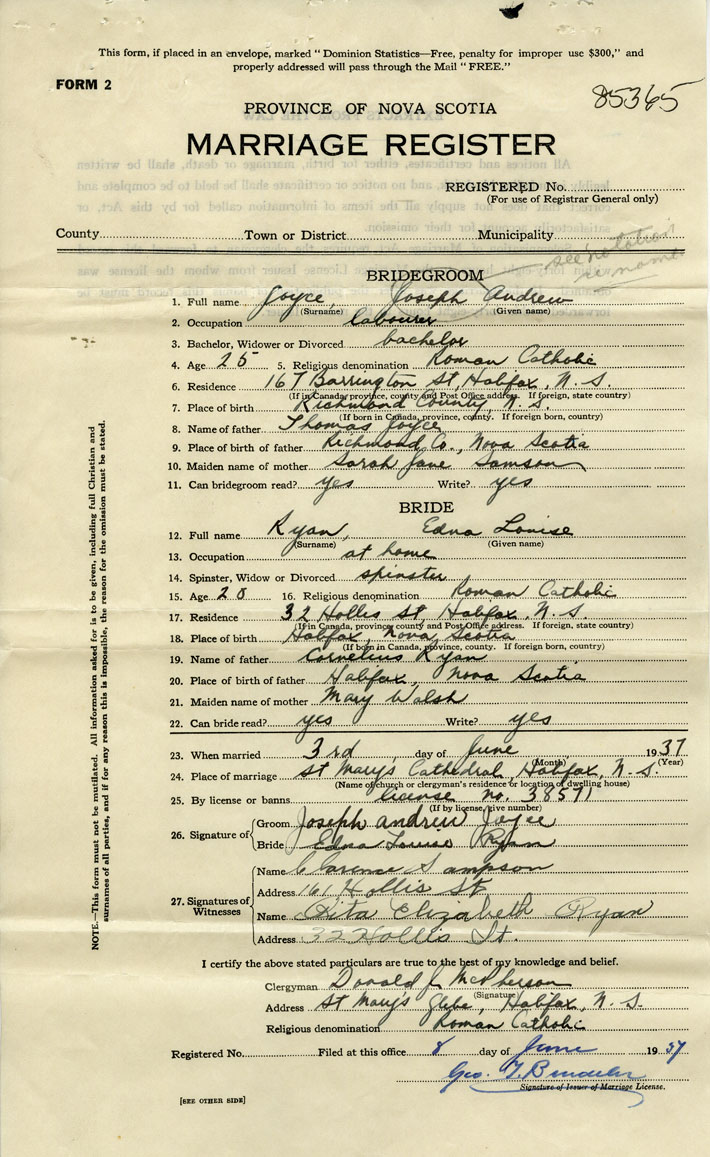 This form, if placed in an envelope, marked "Dominion Statistics—Free, penalty for improper use $300," and
properly addressed will pass through the Mail "FREE."
FORM 2
85365
PROVINCE OF NOVA SCOTIA
MARRIAGE REGISTER
REGISTERED No.
(For use of Registrar General only)
County Town or District Municipality
see notation
re name
BRIDEGROOM
1. Full name Joyce, Joseph Andrew
(Surname) (Given name)
2. Occupation labourer
3. Bachelor, Widower or Divorced bachelor
4. Age 25 5. Religious denomination Roman Catholic
6. Residence 167 Barrington St, Halifax, N. S.
(If in Canada, province, county and Post Office address. If foreign, state country)
7. Place of birth Richmond County, N. S.
(If born in Canada, province, county. If foreign born, country)
8. Name of father Thomas Joyce
9. Place of birth of father Richmond Co., Nova Scotia
10. Maiden name of mother Sarah Jane Samson
11. Can bridegroom read? yes Write? yes
BRIDE
12. Full name Ryan, Edna Louise
(Surname) (Given name)
13. Occupation at home
14. Spinster, Widow or Divorced spinster
15. Age 20 16. Religious denomination Roman Catholic
17. Residence 32 Hollis St, Halifax, N. S.
(If in Canada, province, county and Post Office address. If foreign, state country)
18. Place of birth Halifax, Nova Scotia
(If born in Canada, province, county. If foreign born, country)
19. Name of father Cornelius Ryan
20. Place of birth of father Halifax, Nova Scotia
21. Maiden name of mother Mary Walsh
22. Can bride read? yes Write? yes
23. When married 3rd day of June 1937
(Month) (Year)
24. Place of marriage St Mary's Cathedral, Halifax, N. S.
(Name of church or clergyman's residence or location of dwelling house)
25. By license or banns license no. 38571
(If by license, give number)
26. Signature of Groom Joseph andrew Joyce
Bride Edna Louise Ryan
27. Signatures of Witnesses
Name Clarence Sampson
Address 161 Hollis St
Name Rita Elizabeth Ryan
Address 32 Hollis St.
I certify the above stated particulars are true to the best of my knowledge and belief.
Clergyman Donald J. McPherson
(Signature)
Address St Mary's Glebe, Halifax, N. S.
Religious denomination Roman Catholic
Registered No. Filed at this office 8 day of June 1937
Geo. T.
Signature of Issuer of Marriage License.
[SEE OTHER SIDE]
NOTE.—This form must not be mutilated. All information asked for is to be given, including full Christian and
surnames of all parties, and if for any reason this is impossible, the reason for the omission must be stated.